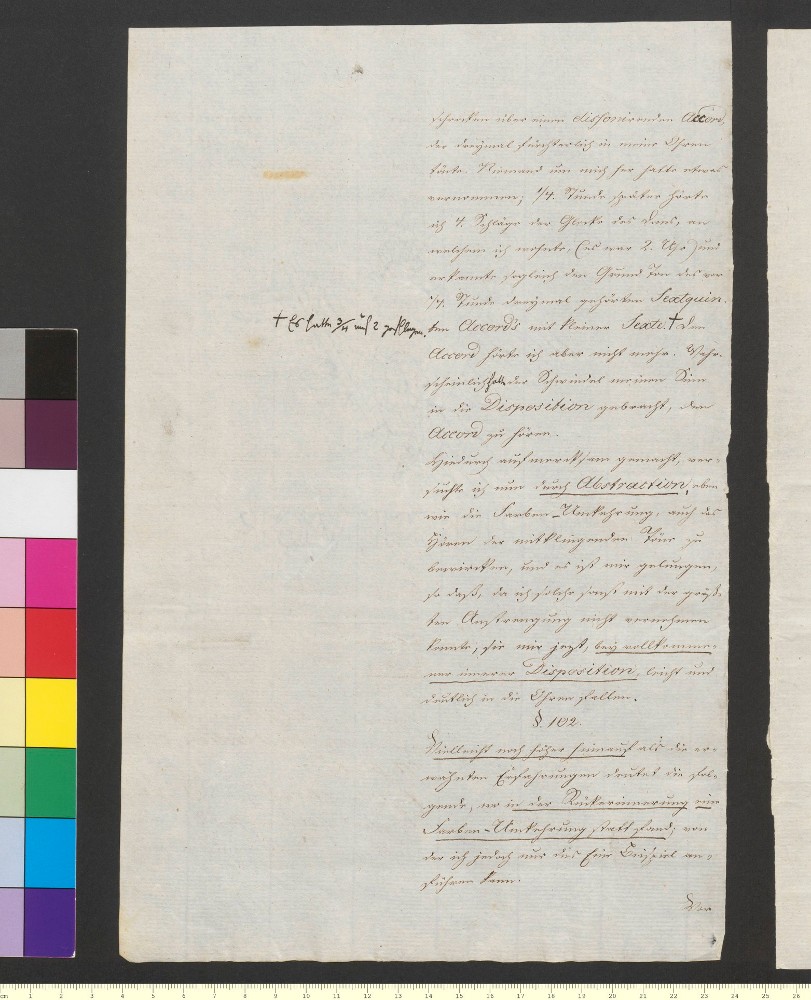 schrocken über einen dissonirenden Accord,
der dreymal fürchterlich in meine Ohren
tönte. Niemand um mich her hatte etwas
vernommen; 1/4. Stunde später hörte
ich 4. Schläge der Glocke des Doms, an
welchem ich wohnte, (es war 2. Uhr) und
erkannte sogleich den Grund Ton des vor
1/4. Stunde dreymal gehörten Sextquin-
ten Accord's mit kleiner Sexte. † Den
† Es hatte 3/4 auf 2 geschlagen.
Accord hörte ich aber nicht mehr. Wahr-
scheinlich hatte der Schwindel meinen Sinn
in die Disposition gebracht, den
Accord zu hören.
Hiedurch aufmerksam gemacht, ver-
suchte ich nun durch Abstraction, eben
wie die Farben-Umkehrung, auch das
Hören der mitklingenden Töne zu
bewirken, und es ist mir gelungen,
so daß, da ich solche sonst mit der größ-
ten Anstrengung nicht vernehmen
konnte, sie mir jezt, bey vollkomme-
ner innerer Disposition, leicht und
deutlich in die Ohren fallen.
§. 102.
Vielleicht noch höher hinauf als die er-
wähnten Erfahrungen deutet die fol-
gende, wo in der Rückerinnerung eine
Farben-Umkehrung statt fand; von
der ich jedoch nur das Eine Beispiel an-
führen kann.
Vor